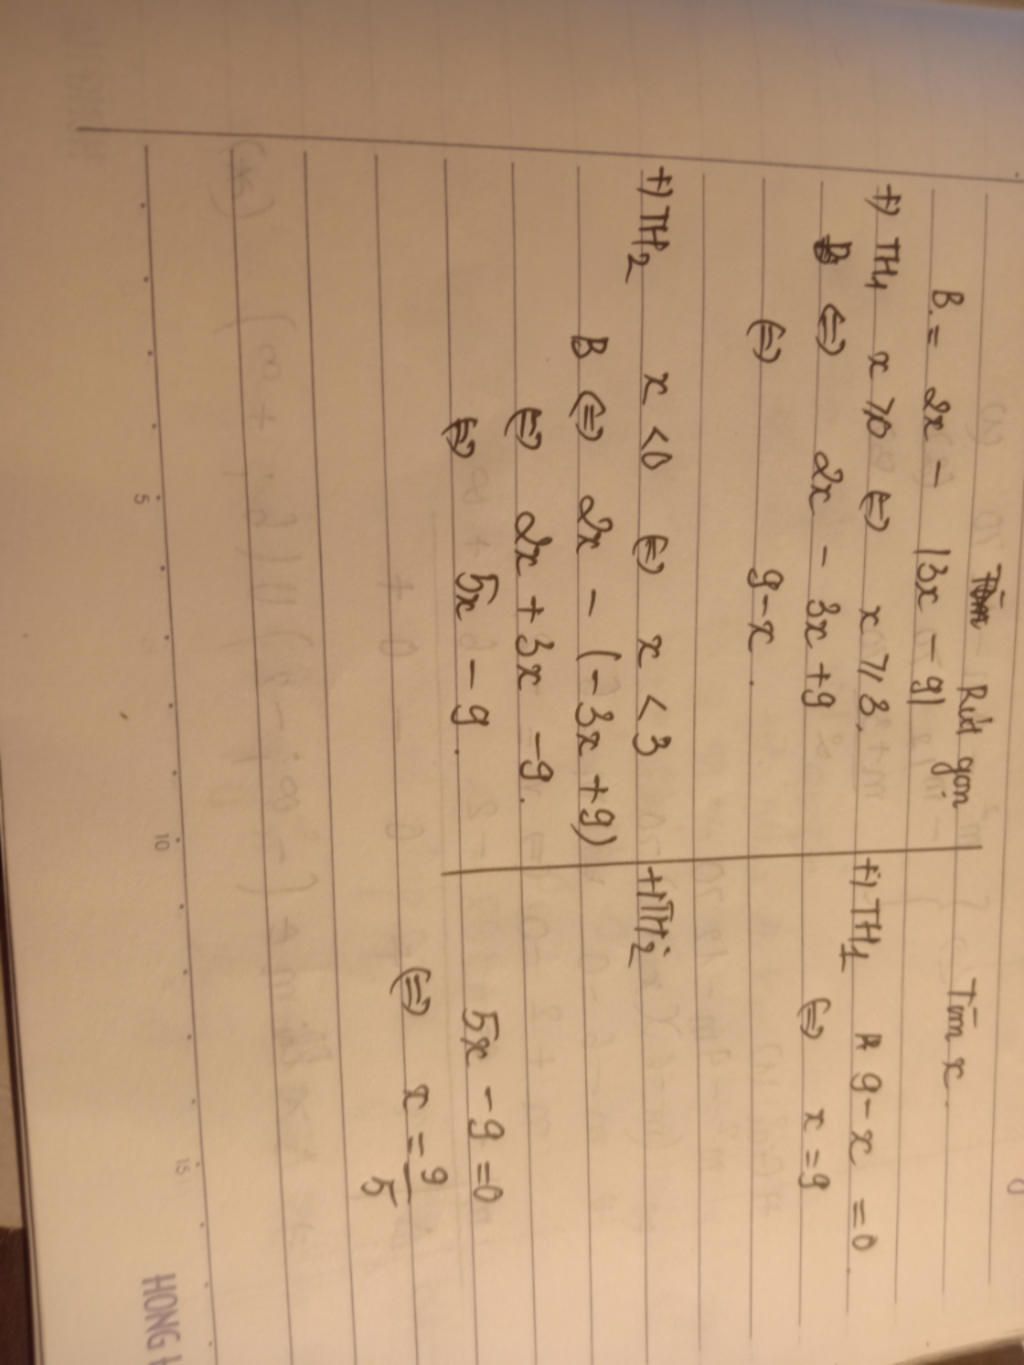 Rút gọn
Tìm x.
B = 2x - |3x - 9|
+) TH1 x ≥ 0 (=) x ≥ 3.
B (=) 2x - 3x + 9
(=) 9 - x.
+) TH2 x < 0 (=) x < 3
B (=) 2x - (-3x + 9)
(=) 2x + 3x - 9.
(=) 5x - 9.
+) TH1 9 - x = 0.
(=) x = 9
+) TH2
5x - 9 = 0
(=) x = 9/5
5
10
15
HONG